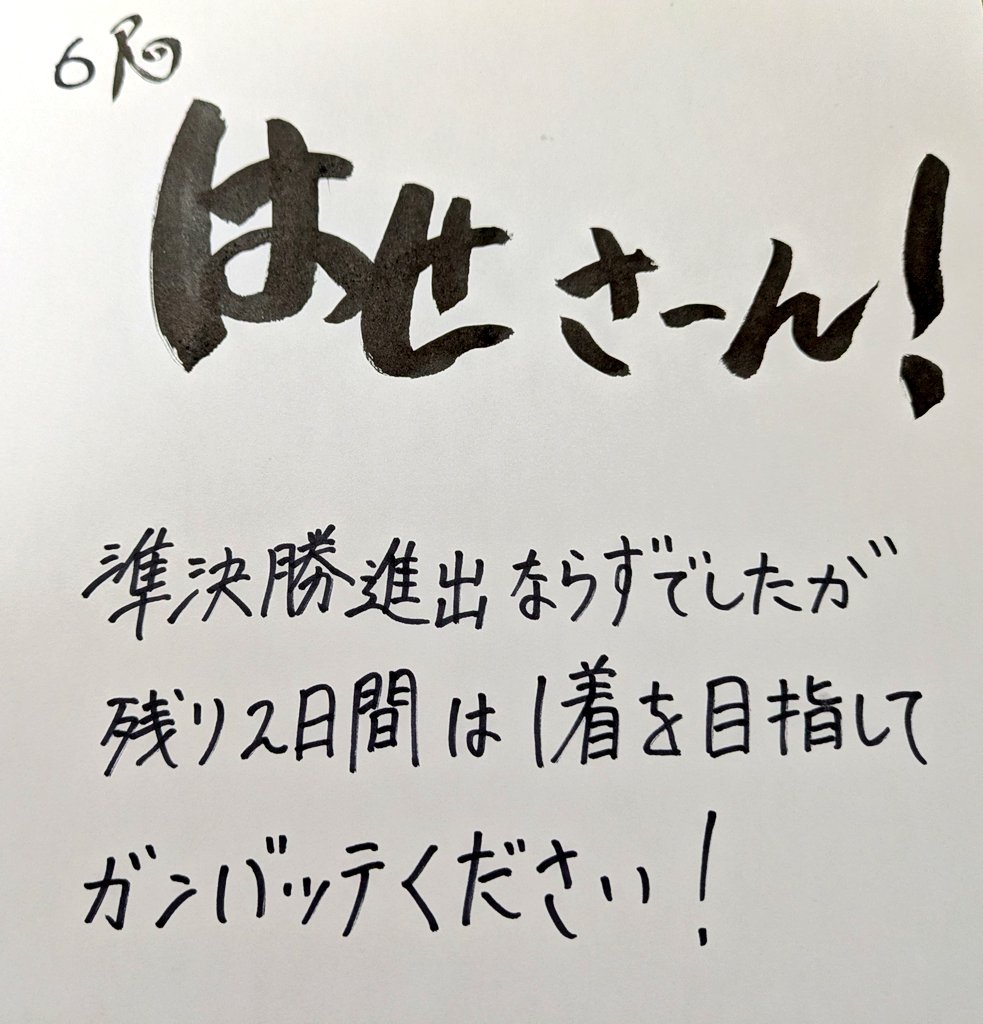 6R
はせさーん!
準決勝進出ならずでしたが
残り2日間は1着を目指して
ガンバッテください!